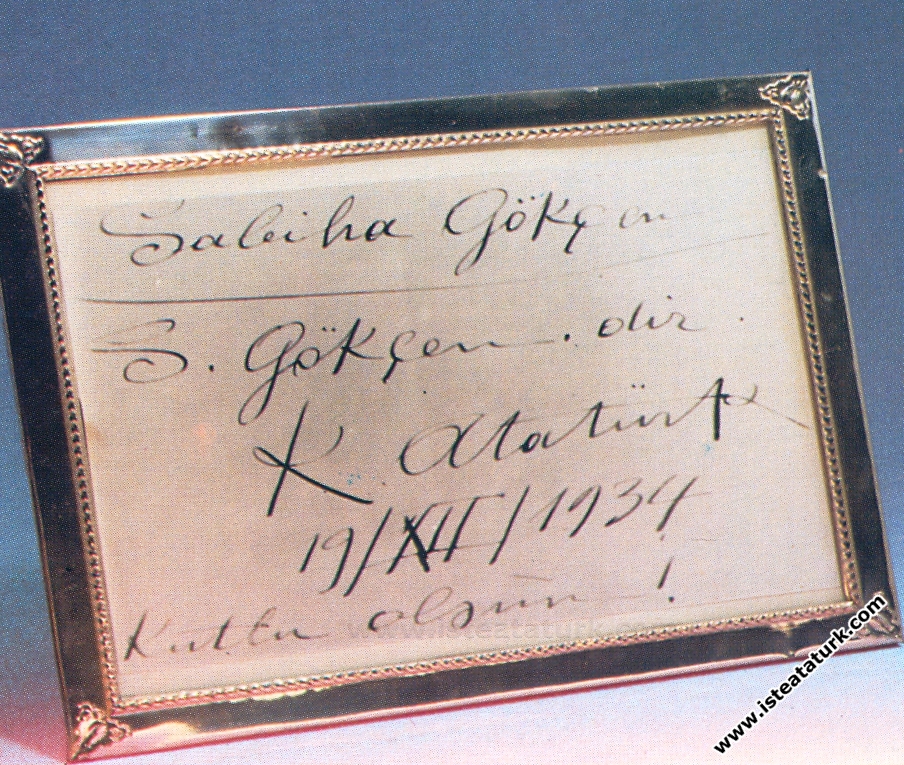 Sabiha Gökçen
S. Gökçen . dir .
K Atatürk
19/XII/1934
Kutlu olsun !
www.isteataturk.com
www.isteataturk.com